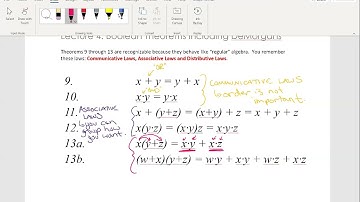 Lecture 4: Boolean Theorems including DeMorgans
Theorems 9 through 13 are recognizable because they behave like "regular" algebra. You remember
those laws: Communicative Laws, Associative Laws and Distributive Laws.
"OR"
9. x + y = y + x
communicative Laws
"AND"
10. x·y = y·x
order is not
important.
Associative
Laws
you can
group how
you want.
11. x + (y+z) = (x+y) + z = x + y + z
12. x(y·z) = (x·y)z = x·y·z
13a. x(y+z) = x·y + x·z
13b. (w+x)(y+z) = w·y + x·y + w·z + x·z